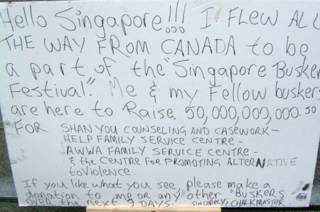 Hello Singapore!!! I FLEW ALL
THE WAY FROM CANADA to be
a part of the "Singapore Busker
Festival". Me & my Fellow buskers
are here to Raise 50,000,000,000.50
FOR SHAN YOU COUNSELING AND CASEWORK -
HELP FAMILY SERVICE CENTRE -
AWWA FAMILY SERVICE CENTRE -
& the CENTRE FOR PROMOTING ALTERNATIVE
to Violence.
If you like what you see, please make a
donation to me or any other "Buskers
over the next 9 DAYS. CHALKMASTER